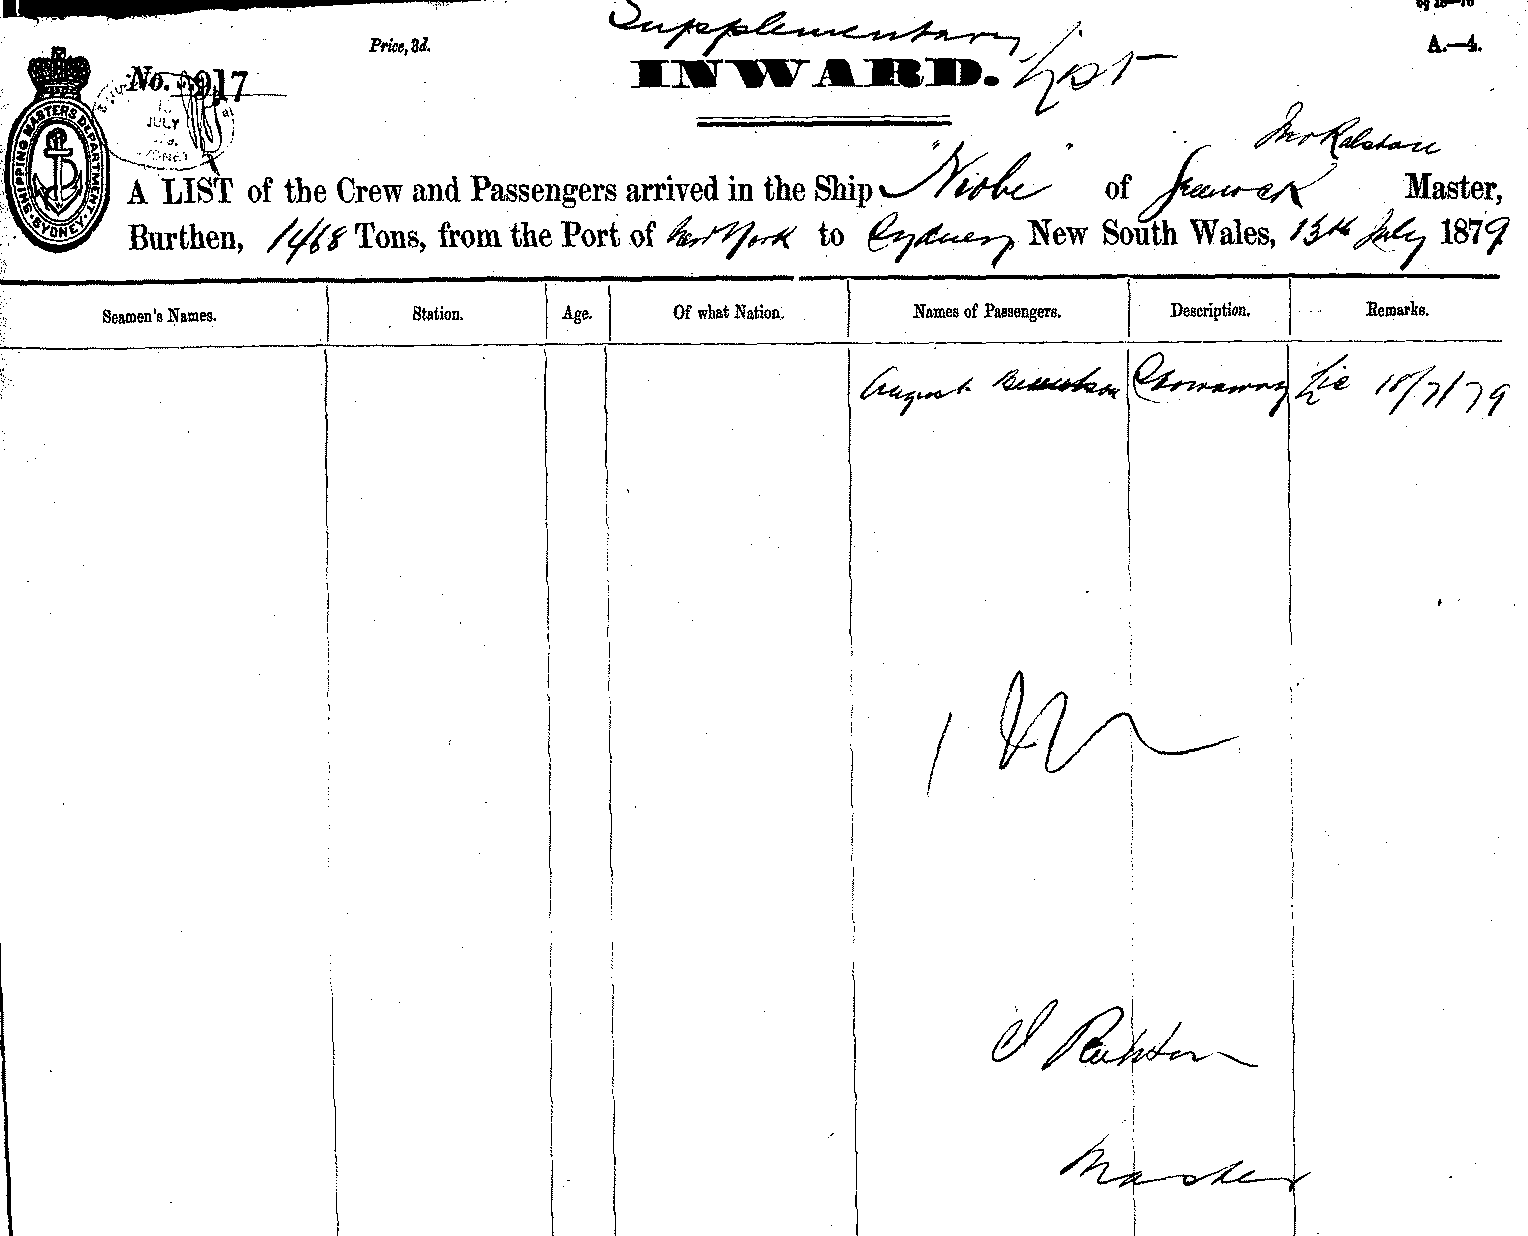 Supplementary List
Price, 3d.
A.—4.
No. 917
INWARD.
SHIPPING MASTERS DEPARTMENT. SYDNEY.
JULY
Jno Ralston
A LIST of the Crew and Passengers arrived in the Ship "Niobe" of Greenock Master,
Burthen, 1468 Tons, from the Port of New York to Sydney New South Wales, 13th July 1879
Seamen's Names. Station. Age. Of what Nation. Names of Passengers. Description. Remarks.
August Stowaway Lic 18/7/79
1
J Ralston
Master